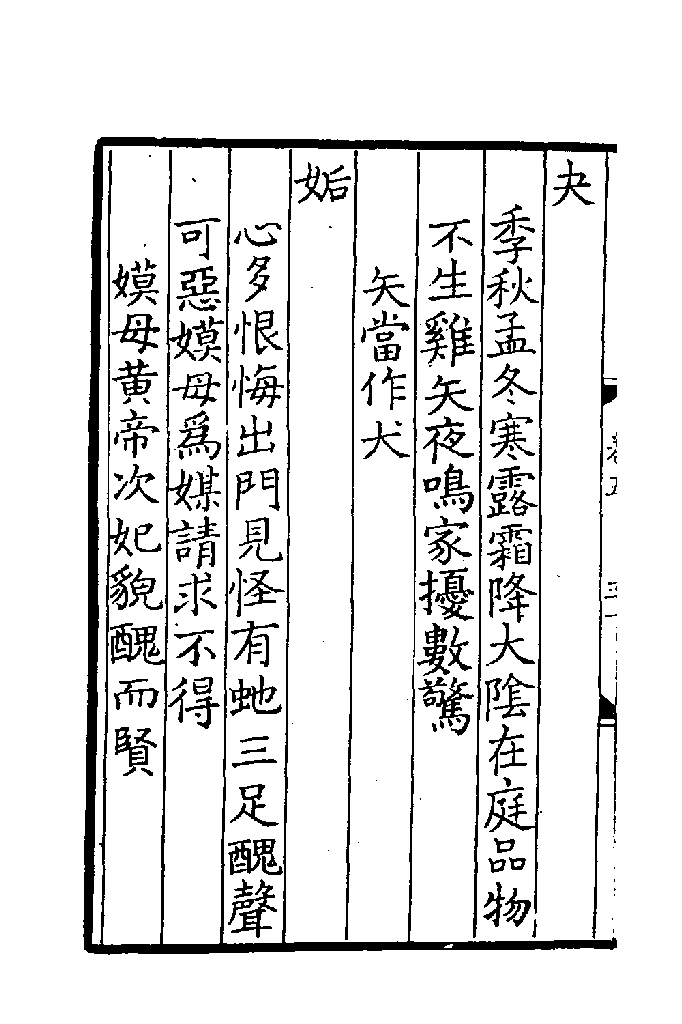 夬
季秋孟冬寒露霜降大陰在庭品物
不生雞矢夜鳴家擾數驚
矢當作犬
姤
心多恨悔出門見怪有虵三足醜聲
可惡嫫母為媒請求不得
嫫母黄帝次妃貌醜而賢